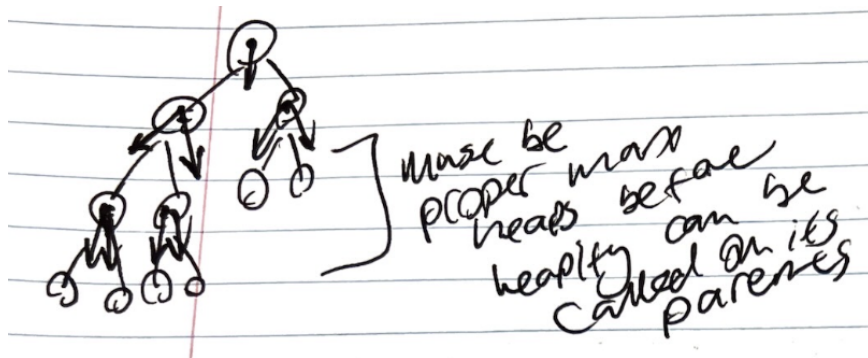 must be
proper max
heaps before
heapify can be
called on its
parents